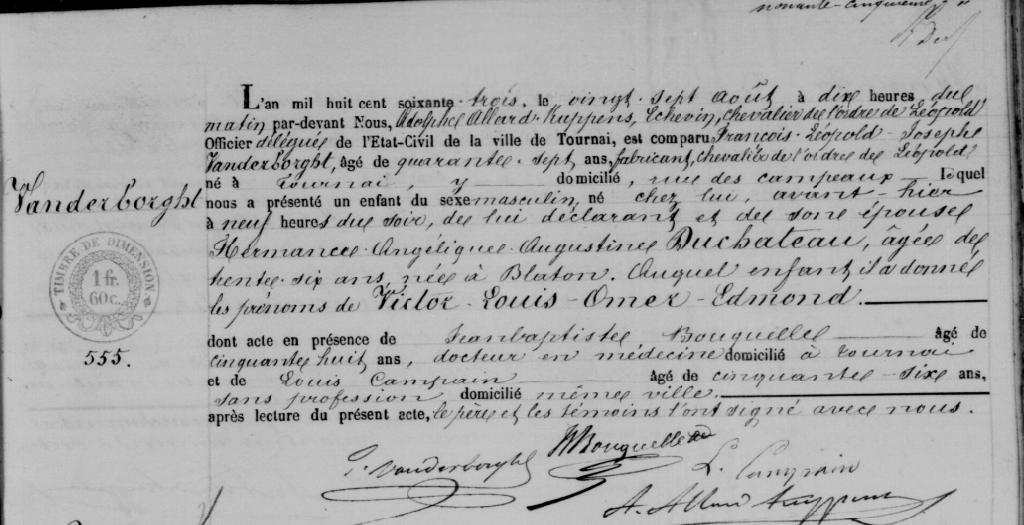 nonante-cinquième
L'an mil huit cent soixante-trois, le vingt-sept août à dix heures du
matin par-devant Nous, Adolphe Allard-Kuppens, Echevin, chevalier de l'ordre de Léopold
Officier délégué de l'Etat-Civil de la ville de Tournai, est comparu François-Léopold-Joseph
Vanderborght, âgé de quarante-sept ans, fabricant, chevalier de l'ordre de Léopold
né à Tournai, y domicilié, rue des campeaux lequel
Vanderborght
nous a présenté un enfant du sexe masculin, né chez lui, avant-hier
à neuf heures du soir, de lui déclarant et de son épouse
Hermance-Angélique-Augustine Duchateau, âgée de
trente-six ans, née à Blaton. Auquel enfant il a donné
les prénoms de Victor-Louis-Omer-Edmond.
TIMBRE DE DIMENSION
1 fr.
60 c.
555.
dont acte en présence de Jeanbaptiste Bouquelle âgé de
cinquante huit ans, docteur en médecine domicilié à Tournai
et de Louis Campain âgé de cinquante-six ans,
sans profession, domicilié même ville.
après lecture du présent acte, le père et les témoins l'ont signé avec nous.
Vanderborght
Bouquelle
L. Campain
A. Allard Kuppens